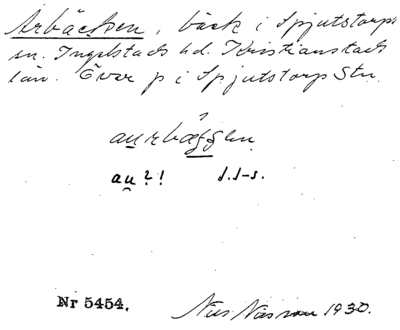 Arbäcken, bäck i Spjutstorps
sn. Ingelstads hd. Kristianstads
län. Över p i Spjutstorp Stn.
au̯rbæggen
au̯?! J.S-s.
Nr 5454. Nils Nilsson 1930.